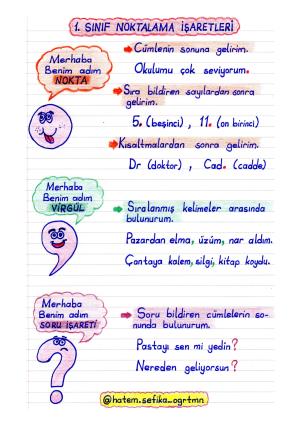 1. SINIF NOKTALAMA İŞARETLERİ
Merhaba
Benim adım
NOKTA
Cümlenin sonuna gelirim.
Okulumu çok seviyorum.
Sıra bildiren sayılardan sonra
gelirim.
5. (beşinci) , 11. (on birinci)
Kısaltmalardan sonra gelirim.
Dr (doktor) , Cad. (cadde)
Merhaba
Benim adım
VİRGÜL
Sıralanmış kelimeler arasında
bulunurum.
Pazardan elma, üzüm, nar aldım.
Çantaya kalem, silgi, kitap koydu.
Merhaba
Benim adım
SORU İŞARETİ
Soru bildiren cümlelerin so-
nunda bulunurum.
Pastayı sen mi yedin?
Nereden geliyorsun?
@hatem_sefika_ogrtmn